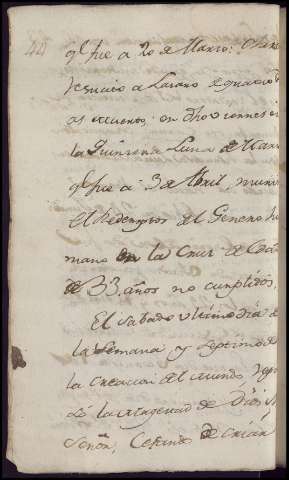 40
qᵉ fue a 20 de Marzo: 
a Lazaro
as muerto, en dho viernes
la Quinzena Luna de Mar
qᵉ fue a 3 de Abril, murió
el Redemptor del Genero hu
mano en la Cruz de
de 33 años no cumplidos.
El sabado ultimo dia de
la semana, y septimo de
la creacion del mundo,
la magestad de Dios N
Señor, Cesando de criar